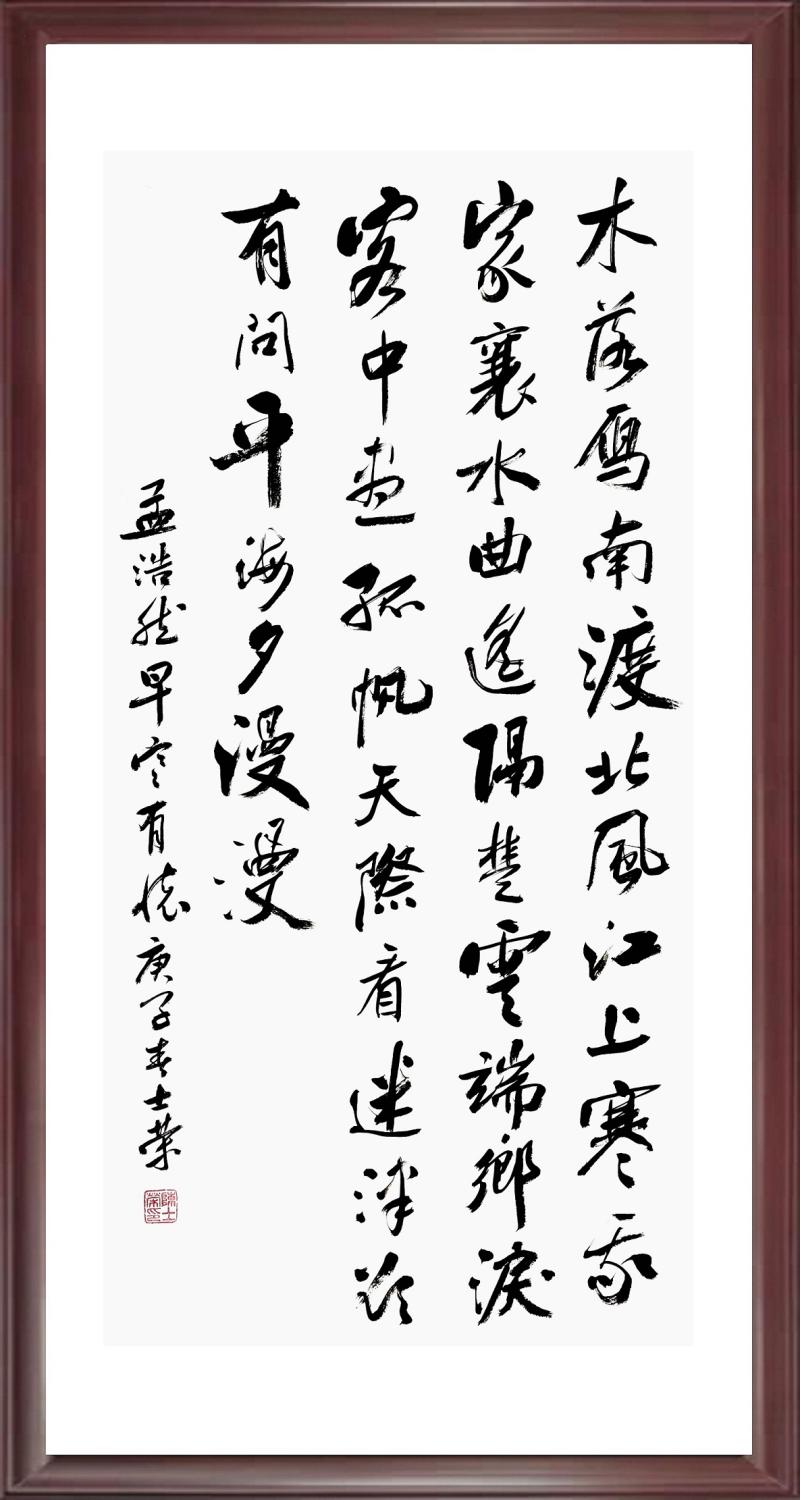 木落鴈南渡北風江上寒我
家襄水曲遙隔楚雲端鄉淚
客中盡孤帆天際看迷津欲
有問平海夕漫漫
孟浩然早寒有懷庚子春士榮
陳士榮印